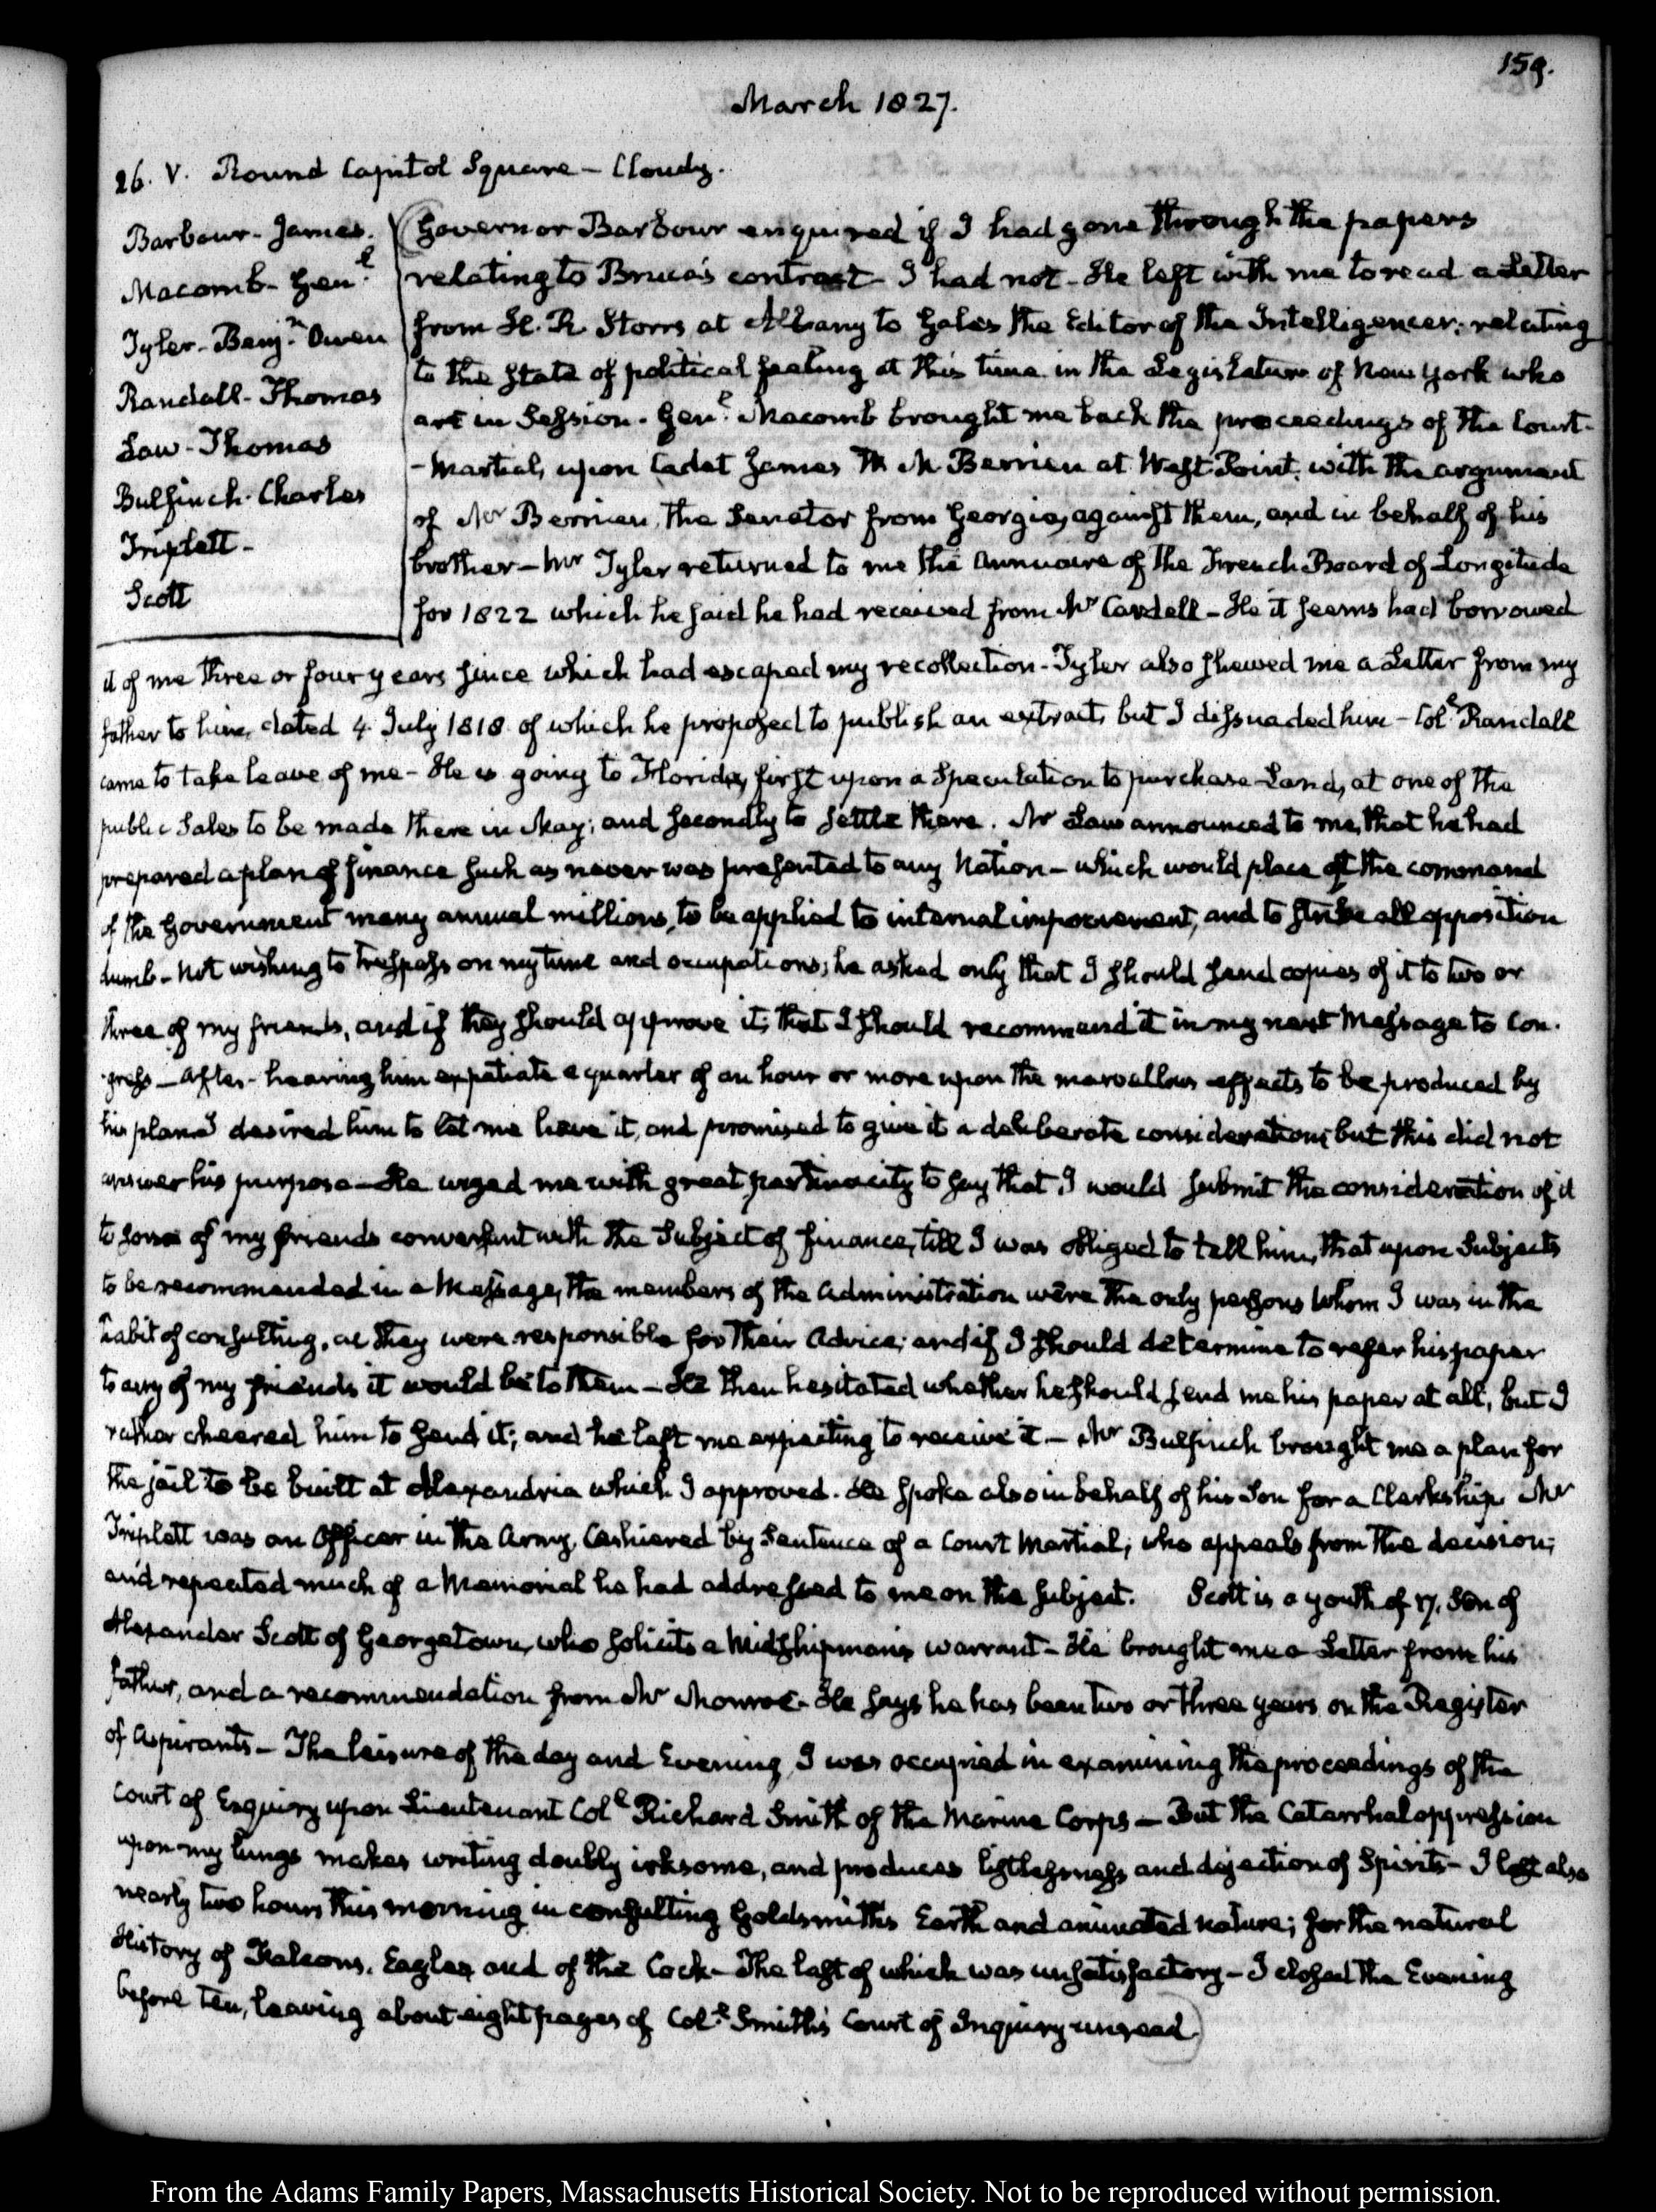 159.
March 1827.
26. V. Round Capitol Square – Cloudy.
Barbour - James.
Macomb - Genl
Tyler - Benjn Owen
Randall - Thomas
Law - Thomas
Bulfinch - Charles
Triplett -
Scott
Governor Barbour enquired if I had gone through the papers
relating to Bruce's contract - I had not - He left with me to read a Letter
from H. R. Storrs at Albany to Gales the Editor of the Intelligencer; relating
to the State of political feeling at this time in the Legislature of New York who
are in Session. Genl Macomb brought me back the proceedings of the Court-
-Martial, upon Cadet James M Berrien at West Point, with the argument
of Mr Berrien, the Senator from Georgia, against them, and in behalf of his
brother – Mr Tyler returned to me the Annuaire of the French Board of Longitude
for 1822 which he said he had received from Mr Cardell – He it seems had borrowed
it of me three or four years since which had escaped my recollection - Tyler also shewed me a Letter from my
father to him, dated 4. July 1818 of which he proposed to publish an extract, but I dissuaded him – Coll Randall
came to take leave of me - He is going to Florida, first upon a Speculation to purchase Land, at one of the
public Sales to be made there in May; and secondly to settle there. Mr Law announced to me, that he had
prepared a plan of finance such as never was presented to any Nation – which would place at the command
of the Government many annual millions, to be applied to internal improvement, and to strike all opposition
dumb – Not wishing to trespass on my time and occupations; he asked only that I should send copies of it to two or
three of my friends, and if they should approve it, that I should recommend it in my next Message to Con-
-gress – After hearing him expatiate a quarter of an hour or more upon the marvellous effects to be produced by
his plan I desired him to let me have it, and promised to give it a deliberate consideration; but this did not
answer his purpose – He urged me with great pertinacity to say that I would submit the consideration of it
to some of my friends conversant with the Subject of finance, till I was obliged to tell him, that upon Subjects
to be recommended in a Message, the members of the Administration were the only persons whom I was in the
habit of consulting, as they were responsible for their Advice; and if I should determine to refer his paper
to any of my friends it would be to them – He then hesitated whether he should send me his paper at all, but I
rather cheered him to send it; and he left me expecting to receive it – Mr Bulfinch brought me a plan for
the jail to be built at Alexandria which I approved. He spoke also in behalf of his Son for a Clerkship. Mr
Triplett was an Officer in the Army, Cashiered by Sentence of a Court Martial; who appeals from the decision;
and repeated much of a Memorial he had addressed to me on the subject. Scott is a youth of 17. Son of
Alexander Scott of Georgetown, who solicits a Midshipman's warrant – He brought me a Letter from his
father, and a recommendation from Mr Monroe - He says he has been two or three years on the Register
of Aspirants – The leisure of the day and Evening I was occupied in examining the proceedings of the
Court of Enquiry upon Lieutenant Coll Richard Smith of the Marine Corps – But the Catarrhal oppression
upon my lungs makes writing doubly irksome, and produces listlessness and dejection of Spirits – I lost also
nearly two hours this morning in consulting Goldsmith's Earth and animated nature; for the natural
History of Falcons, Eagles, and of the Cock – The last of which was unsatisfactory – I closed the Evening
before ten, leaving about eight pages of Coll Smith's Court of Inquiry unread.
From the Adams Family Papers, Massachusetts Historical Society. Not to be reproduced without permission.